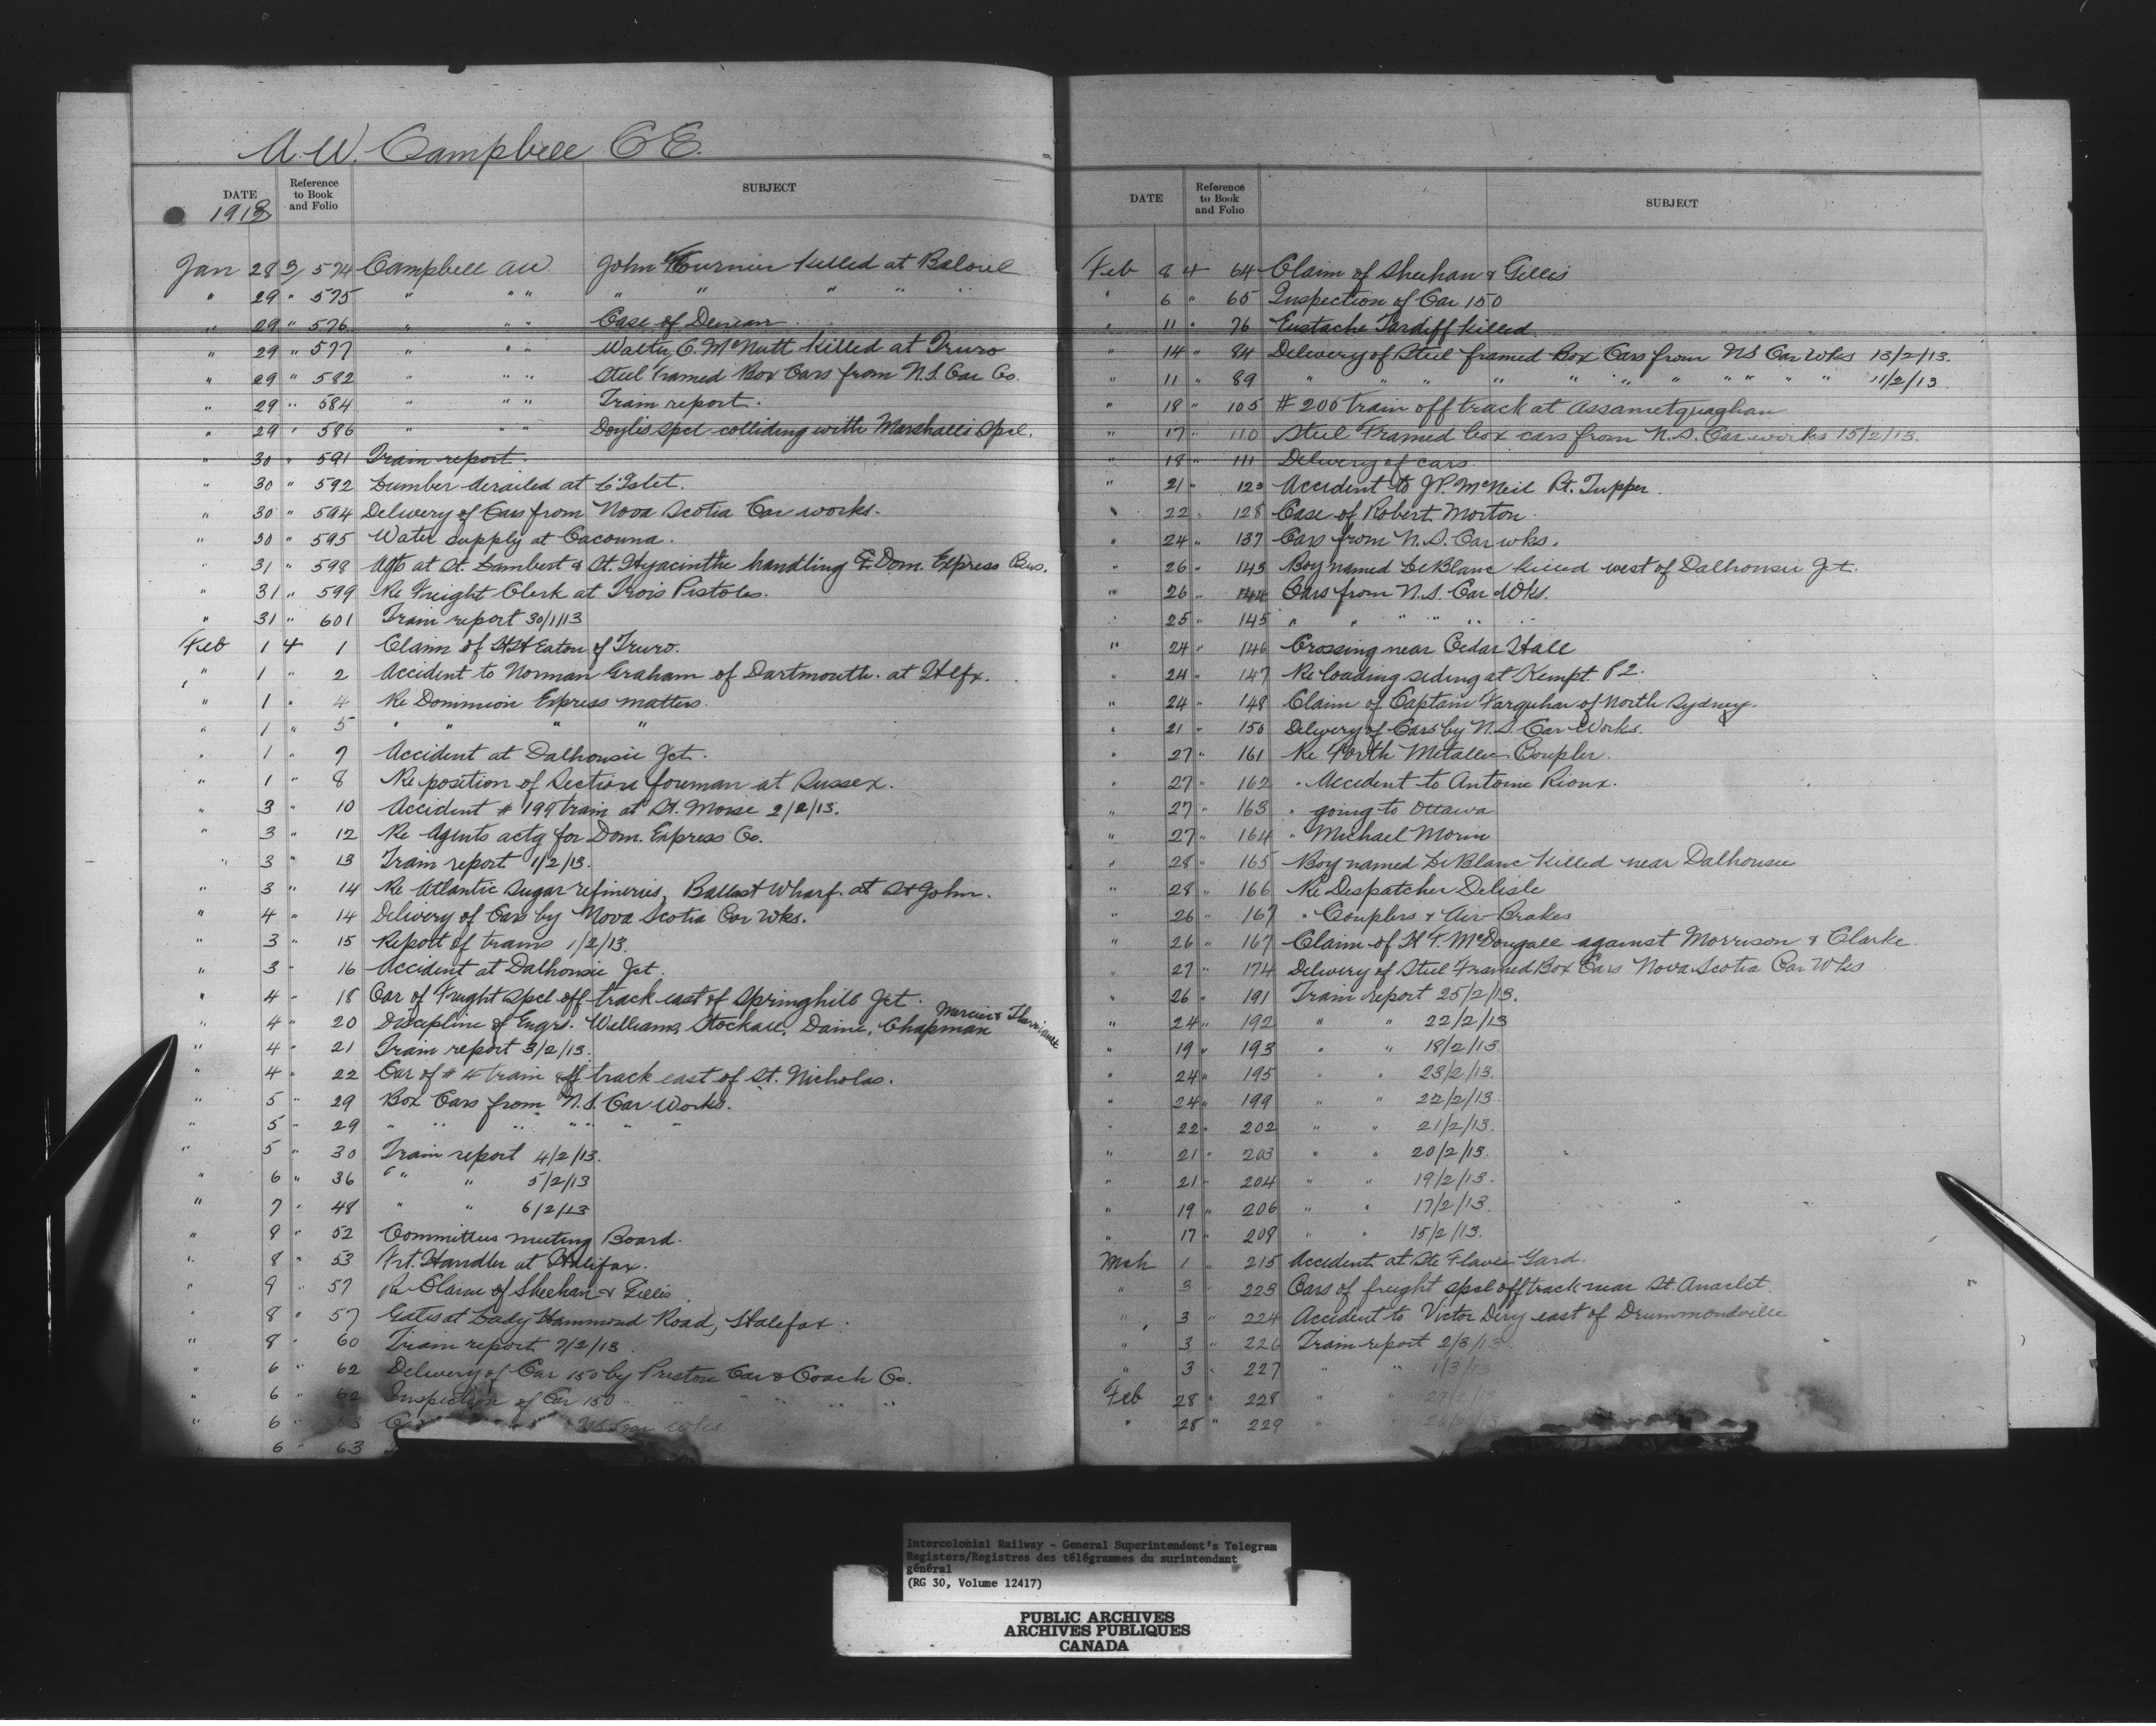 A. W. Campbell C E.
DATE Reference to Book and Folio SUBJECT
1913
Jan 28 3/ 574 Campbell AW John Fournier killed at Beloeil
" 29 " 575 " " " " " " " "
" 29 " 576 " " " Case of
" 29 " 577 " " " Walter C. McNutt killed at Truro
" 29 " 582 " " " Steel Framed Box Cars from N.S. Car Co.
" 29 " 584 " " " Train report.
" 29 " 586 " " " Doyles spcl colliding with Marshalls Spcl.
" 30 " 591 Train report
" 30 " 592 Lumber derailed at L'Islet.
" 30 " 594 Delivery of Cars from Nova Scotia Car works.
" 30 " 595 Water supply at Cacouna.
" 31 " 598 Agts at St. Lambert & St. Hyacinthe handling Dom. Express Bus.
" 31 " 599 Re Freight Clerk at Trois Pistoles.
" 31 " 601 Train report 30/1/13
Feb 1 4 1 Claim of Eaton of Truro.
" 1 " 2 Accident to Norman Graham of Dartmouth. at Hlfx.
" 1 " 4 Re Dominion Express matters.
" 1 " 5 " " " "
" 1 " 7 Accident at Dalhousie Jct.
" 1 " 8 Re position of Section foreman at Sussex.
" 3 " 10 Accident # 199 train at St. Moise 2/2/13.
" 3 " 12 Re Agents actg for Dom. Express Co.
" 3 " 13 Train report 1/2/13.
" 3 " 14 Re Atlantic Sugar refineries, Ballast Wharf. at St John.
" 4 " 14 Delivery of Cars by Nova Scotia Car Wks.
" 3 " 15 Report of trains 1/2/13.
" 3 " 16 Accident at Dalhousie Jct.
" 4 " 18 Car of Freight Spcl off track east of Springhill Jct.
" 4 " 20 Discipline of Engrs. Williams, Stockall, Daine, Chapman Mercier &
" 4 " 21 Train report 3/2/13.
" 4 " 22 Car of # 4 train off track east of St. Nicholas.
" 5 " 29 Box Cars from N.S. Car Works.
" 5 " 29 " " " " " " "
" 5 " 30 Train report 4/2/13.
" 6 " 36 " " 5/2/13
" 7 " 48 " " 6/2/13
" 8 " 52 Committees meeting Board.
" 8 " 53 Frt. Handler at Halifax.
" 9 " 57 Re Claim of Sheehan & Gillis
" 8 " 57 Gates at Lady Hammond Road, Halifax.
" 8 " 60 Train report 7/2/13
" 6 " 62 Delivery of Car 150 by Preston Car & Coach Co.
" 6 " 62 Inspection of Car 150 " " " "
" 6 " 63
" 6 " 63
DATE Reference to Book and Folio SUBJECT
Feb 8 4 64 Claim of Sheehan & Gillis
" 6 " 65 Inspection of Car 150
" 11 " 76 Eustache Tardiff killed
" 14 " 84 Delivery of Steel framed Box Cars from NS Car Wks 13/2/13.
" 11 " 89 " " " " " " " " " " " " 11/2/13.
" 18 " 105 # 200 train off track at Assametquaghan
" 17 " 110 Steel Framed box cars from N.S. Car works 15/2/13.
" 18 " 111 Delivery of cars
" 21 " 123 Accident to J.P. McNeil Pt. Tupper.
" 22 " 128 Case of Robert Morton.
" 24 " 137 Cars from N.S. Car wks.
" 26 " 143 Boy named LeBlanc killed west of Dalhousie Jct.
" 26 " 144 Cars from N.S. Car Wks.
" 25 " 145 " " " " " "
" 24 " 146 Crossing near Cedar Hall
" 24 " 147 Re loading siding at Kempt P2.
" 24 " 148 Claim of Captain Farquhar of North Sydney.
" 21 " 150 Delivery of Cars by N.S. Car Works.
" 27 " 161 Re Forth Metallic Coupler.
" 27 " 162 " Accident to Antoine Rioux.
" 27 " 163 " going to Ottawa
" 27 " 164 " Michael Morin
" 28 " 165 Boy named LeBlanc killed near Dalhousie
" 28 " 166 Re Despatcher Delisle
" 26 " 167 " Couplers & Air Brakes
" 26 " 167 Claim of H. F. McDougall against Morrison & Clarke.
" 27 " 174 Delivery of Steel Framed Box Cars Nova Scotia Car Wks
" 26 " 191 Train report 25/2/13.
" 24 " 192 " " 22/2/13
" 19 " 193 " " 18/2/13.
" 24 " 195 " " 23/2/13.
" 24 " 199 " " 22/2/13.
" 22 " 202 " " 21/2/13.
" 21 " 203 " " 20/2/13.
" 21 " 204 " " 19/2/13.
" 19 " 206 " " 17/2/13.
" 17 " 208 " " 15/2/13.
Mch 1 " 215 Accident at Ste Flavie Yard.
" 3 " 223 Cars of freight spcl off track near St. Anaclet.
" 3 " 224 Accident to Victor Dery east of Drummondville
" 3 " 226 Train report 2/3/13
" 3 " 227 " " 1/3/13
Feb 28 " 228 " "
" 28 " 229
Intercolonial Railway - General Superintendent's Telegram
Registers/Registres des télégrammes du surintendant
général
(RG 30, Volume 12417)
PUBLIC ARCHIVES
ARCHIVES PUBLIQUES
CANADA